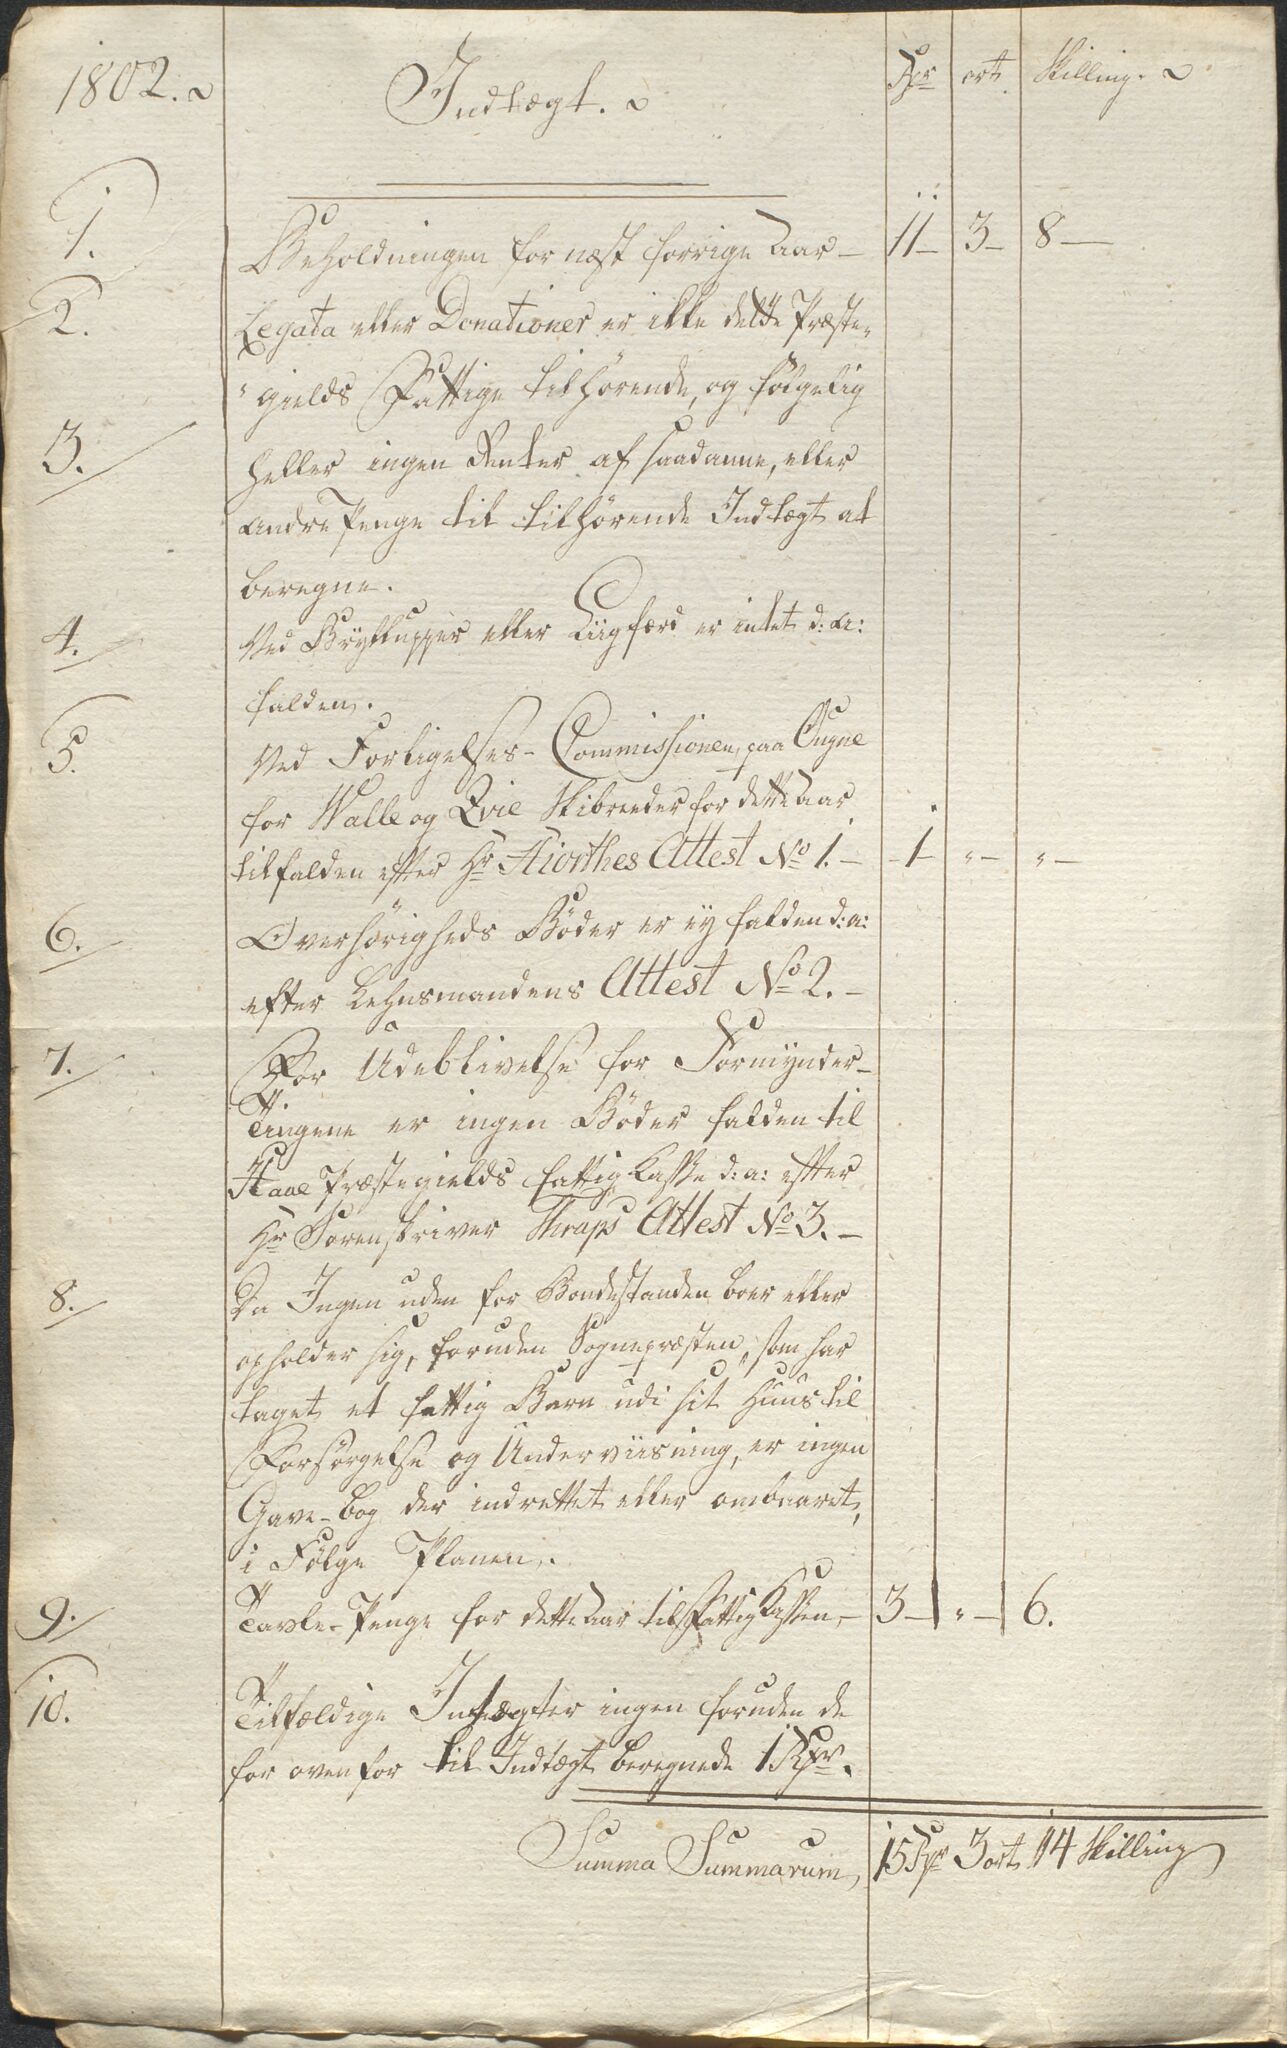 1802.
Indtægt.
Rdr ort Skilling.
1. Beholdningen for næst forrige Aar – 11 – 3 – 8 –
2. Legata eller Donationer er ikke dette Præste-
gields Fattige tilhørende, og følgelig
3. heller ingen Renter af saadanne, eller
andre Penge til tilhørende Indtægt at
beregne.
4. Ved Brylluper eller Liigfærd er intet d: a:
falden.
5. Ved Forligelses-Commissionen paa Ougne
for Walle og Qvie Skibreeder for dette Aar
tilfalden efter Hr Hiorthes Attest No 1. – 1 – " – " –
6. Overhørigheds Bøder er ey falden d: a:
efter Lehnsmandens Attest No 2. –
7. For Udeblivelse for Formynder-
Tingene er ingen Bøder falden til
Haae Præstegields fattig Kasse d: a: efter
Hr Sorenskriver Thraps Attest No 3. –
8. Da Ingen uden for Bondestanden boer eller
opholder sig, foruden Sognepræsten, som har
taget et fattig Barn udi sit Huus til
Forsørgelse og Underviisning, er ingen
Gave-bog der indrettet eller ombaaret,
i Følge Planen.
9. Tavle-Penge for dette Aar til Fattig Kassen – 3 – " – 6.
10. Tilfældige Indtægter ingen foruden de
for ovenfor til Indtægt beregnede 1 Rdr.
Summa Summarum, 15 Rdr 3 ort 14 Skilling